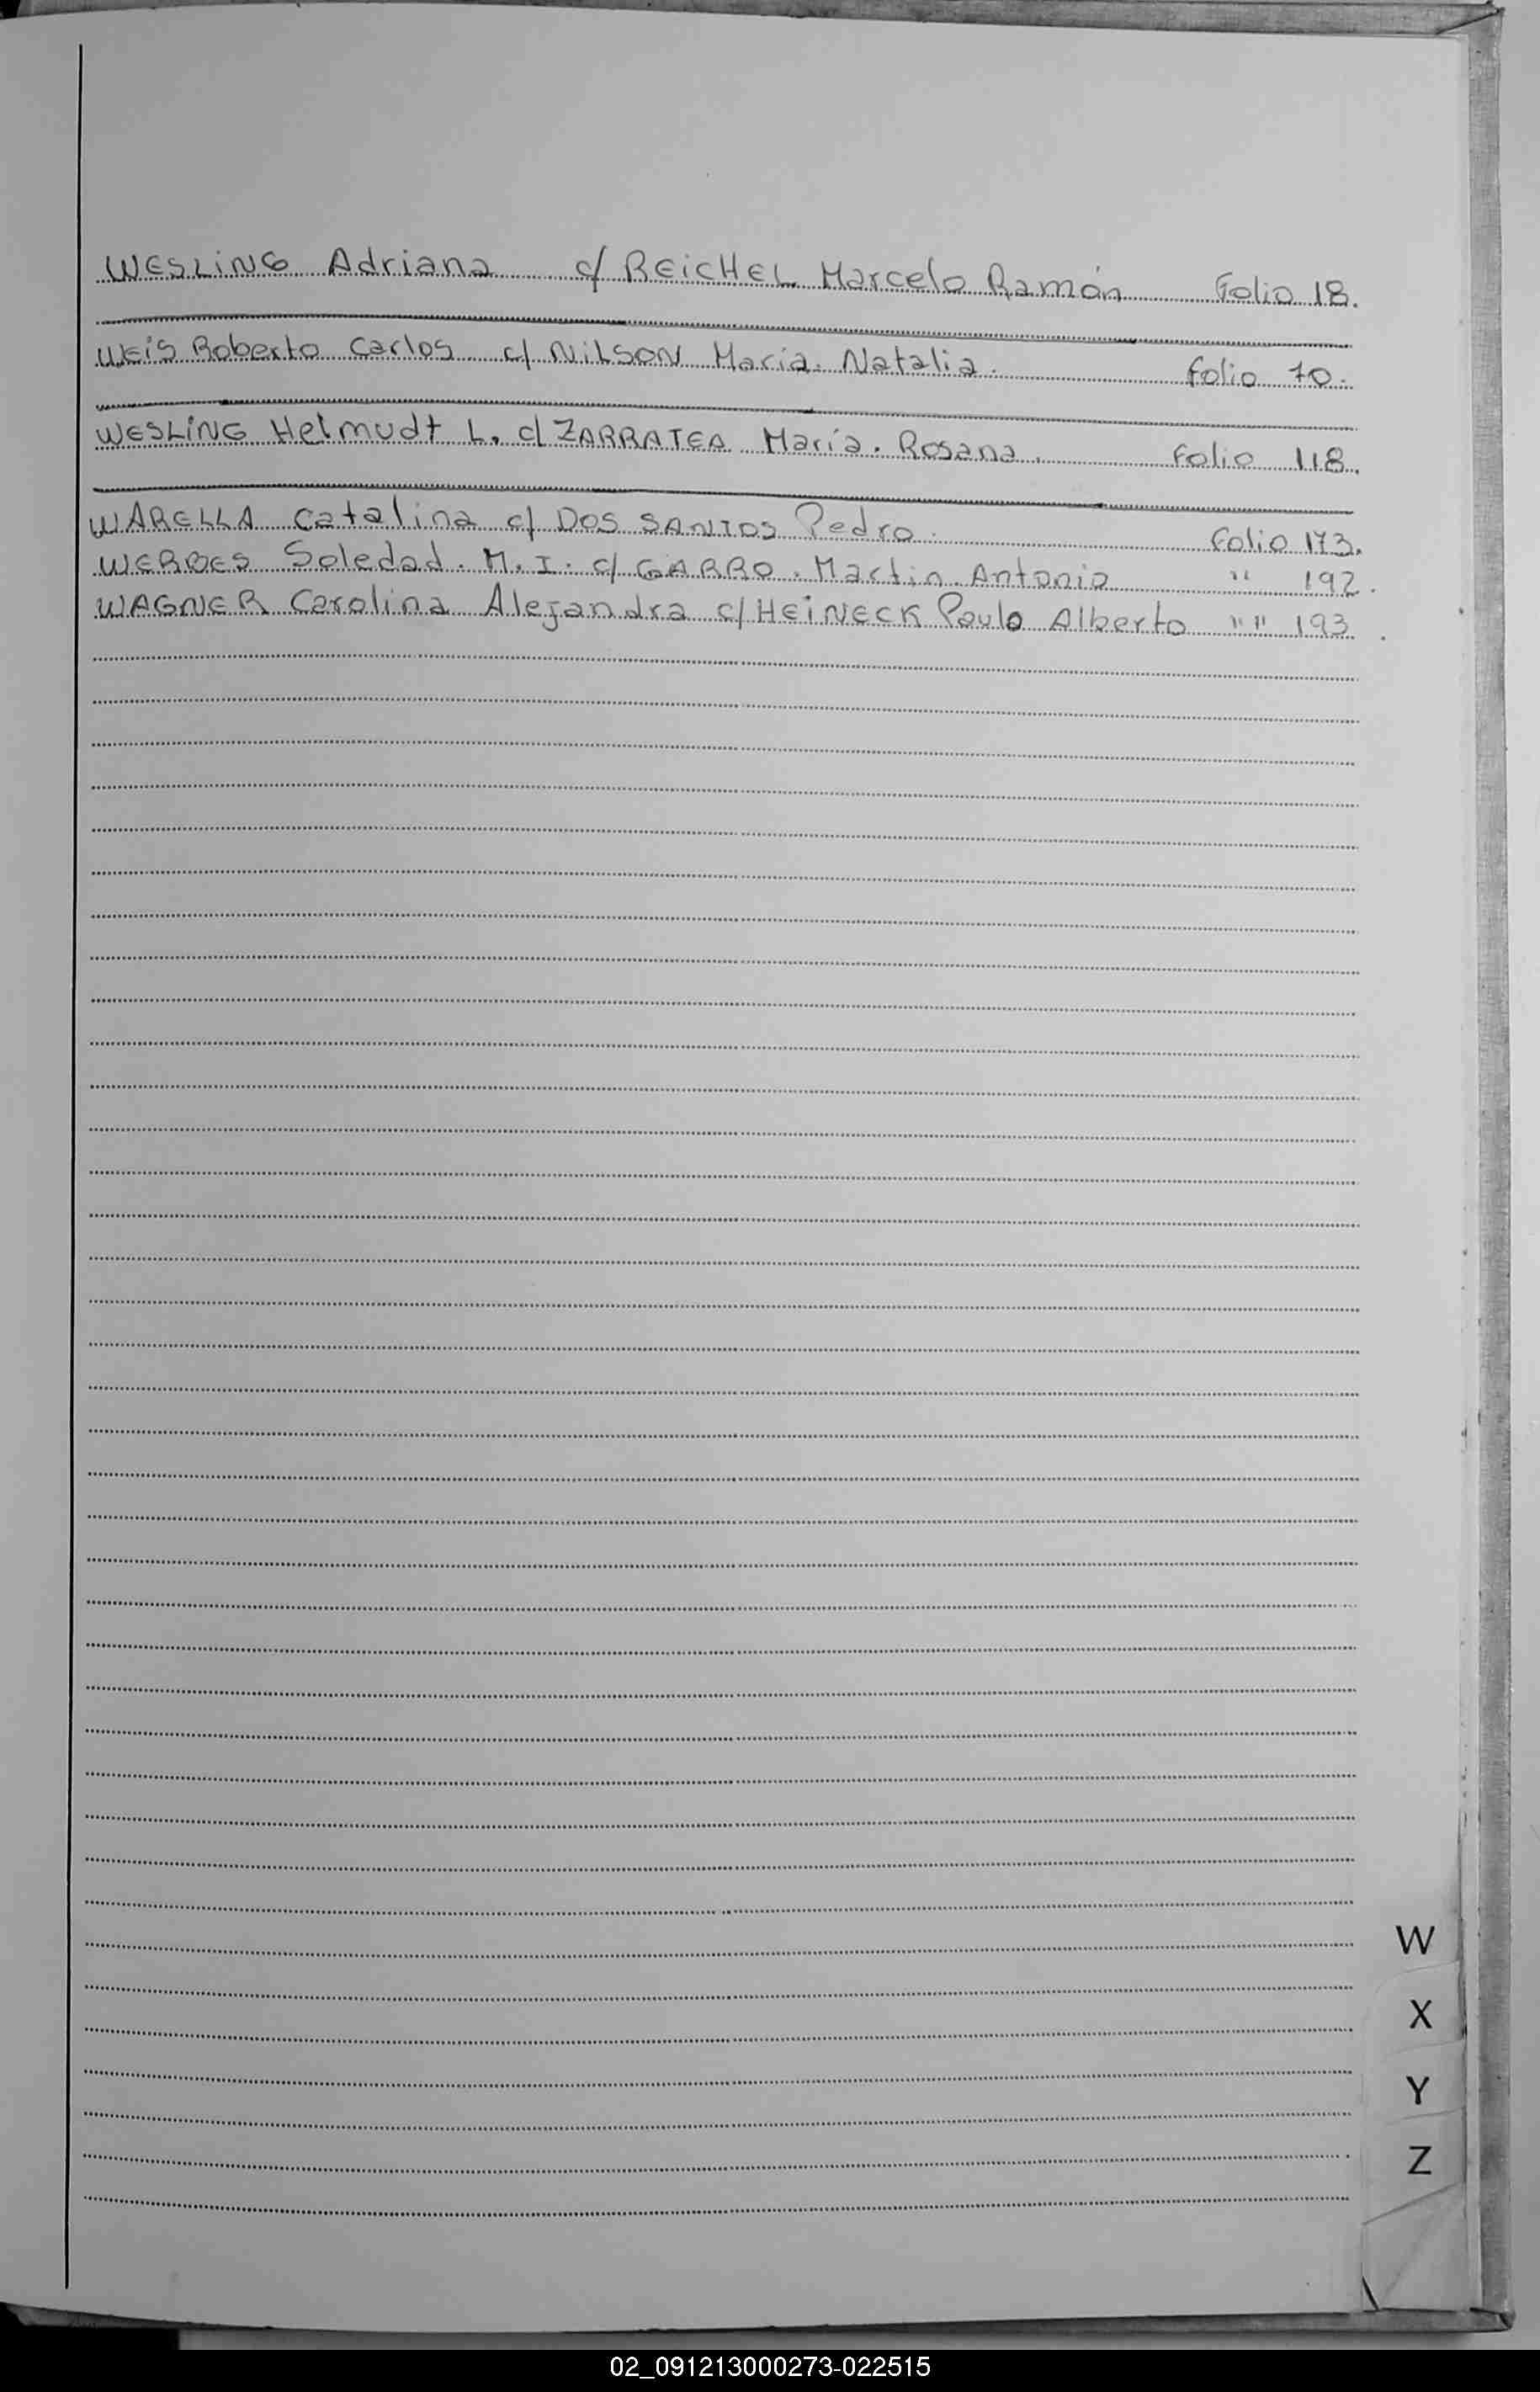 WESLiNG Adriana c/ REiCHEL Marcelo Ramón Folio 18.
WEiS Roberto Carlos c/ NiLSON María. Natalia. folio 70.
WESLiNG Helmudt L. c/ ZARRATEA María. Rosana. folio 118.
WARELLA Catalina c/ DOS SANTOS Pedro. folio 173.
Soledad. M. I. c/ GARRO. Martin. Antonio " 192.
WAGNER Carolina Alejandra c/ HEiNECK Paulo Alberto " " 193.
W
X
Y
Z
02_091213000273-022515